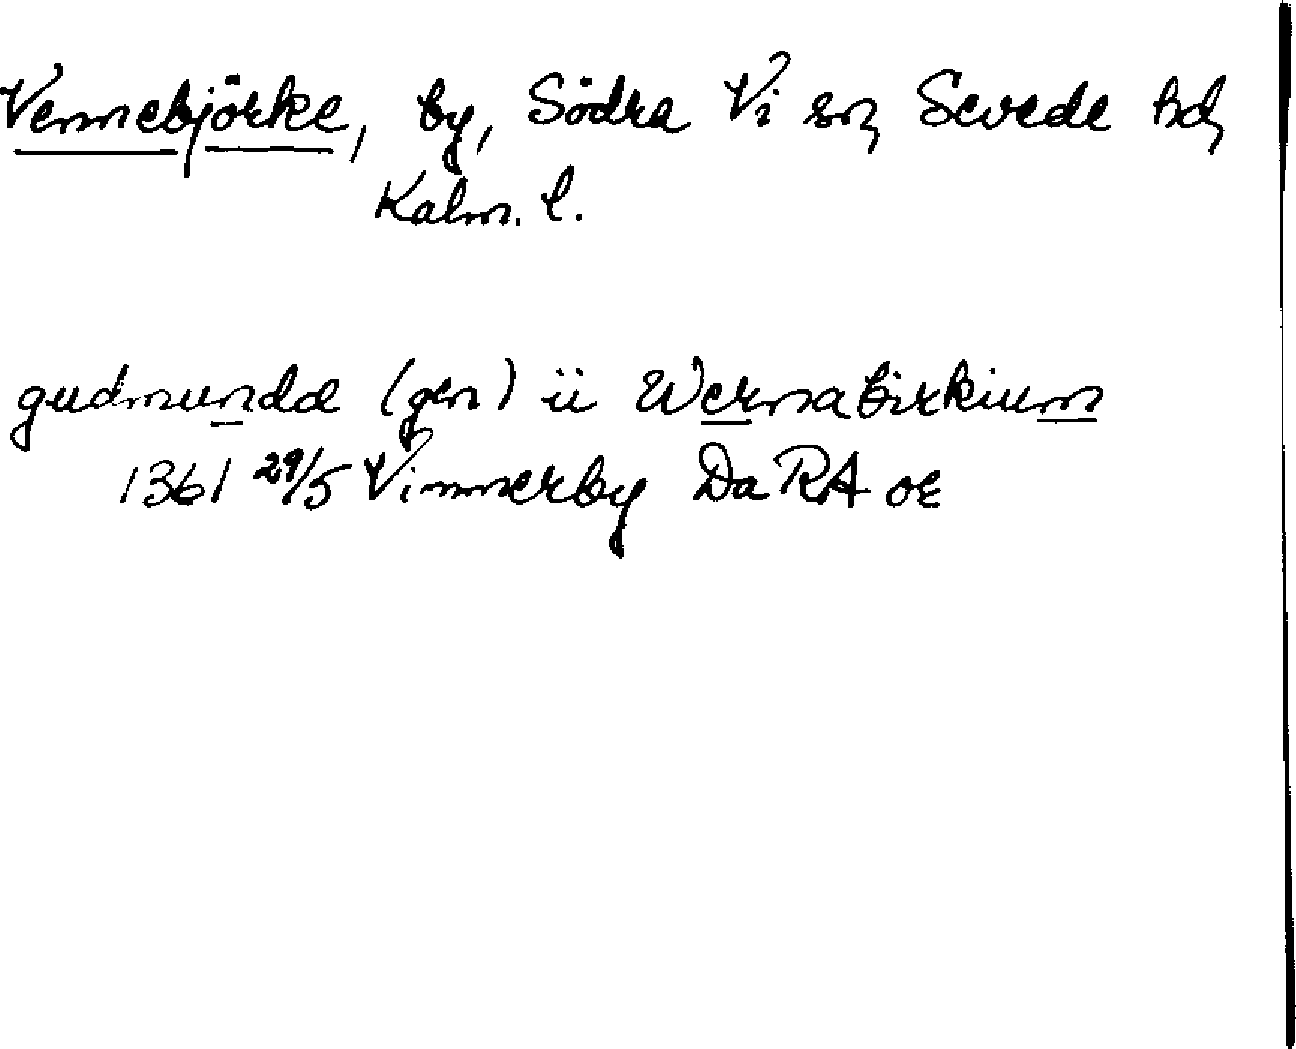 Vennebjörke, by, Södra Vi sn, Sevede hd,
Kalm. l.
gudmundæ (gen) ii Wernabirkium
1361 29/5 Vimmerby Da RA oε